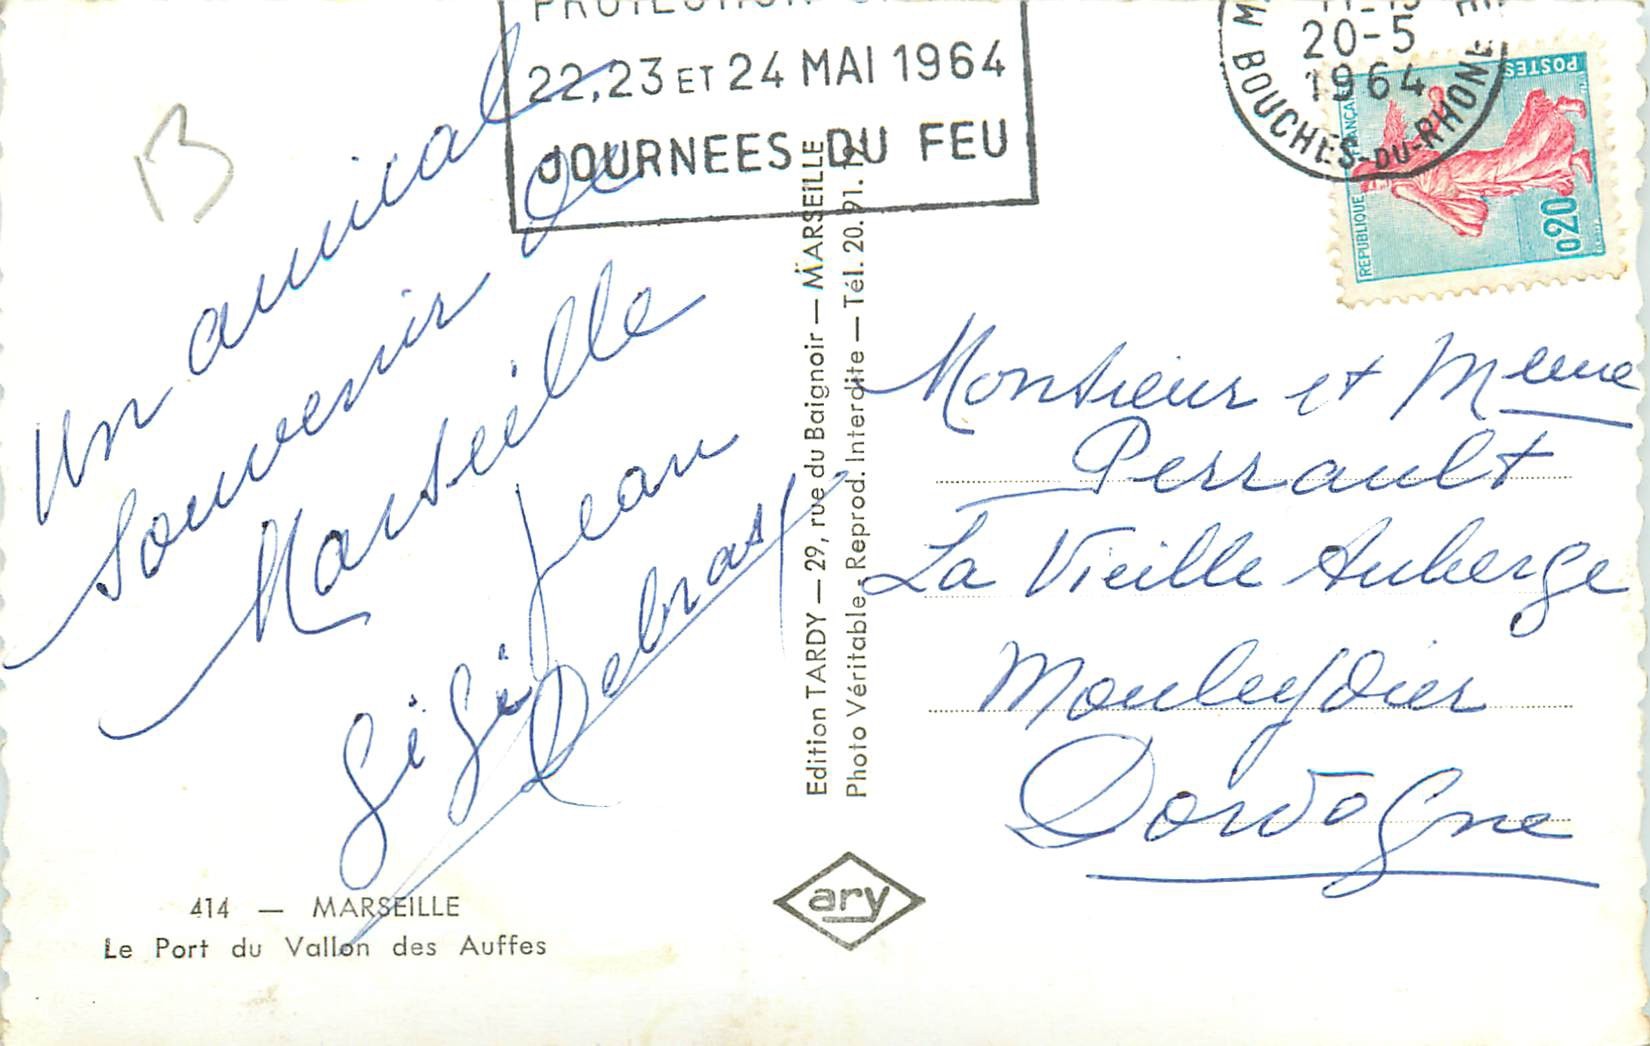 PROTECTION
22, 23 ET 24 MAI 1964
JOURNEES DU FEU
11-15
20-5
1964
BOUCHES-DU-RHONE
REPUBLIQUE FRANÇAISE
POSTES
0,20
B
Un amical
souvenir de
Marseille
Gigi Jean
Debrasy
Edition TARDY — 29, rue du Baignoir — MARSEILLE
Photo Véritable - Reprod. Interdite — Tél. 20.91.
Monsieur et Meme
Perrault
La Vieille Auberge
Mouleydier
Dordogne
414 — MARSEILLE
Le Port du Vallon des Auffes
ary